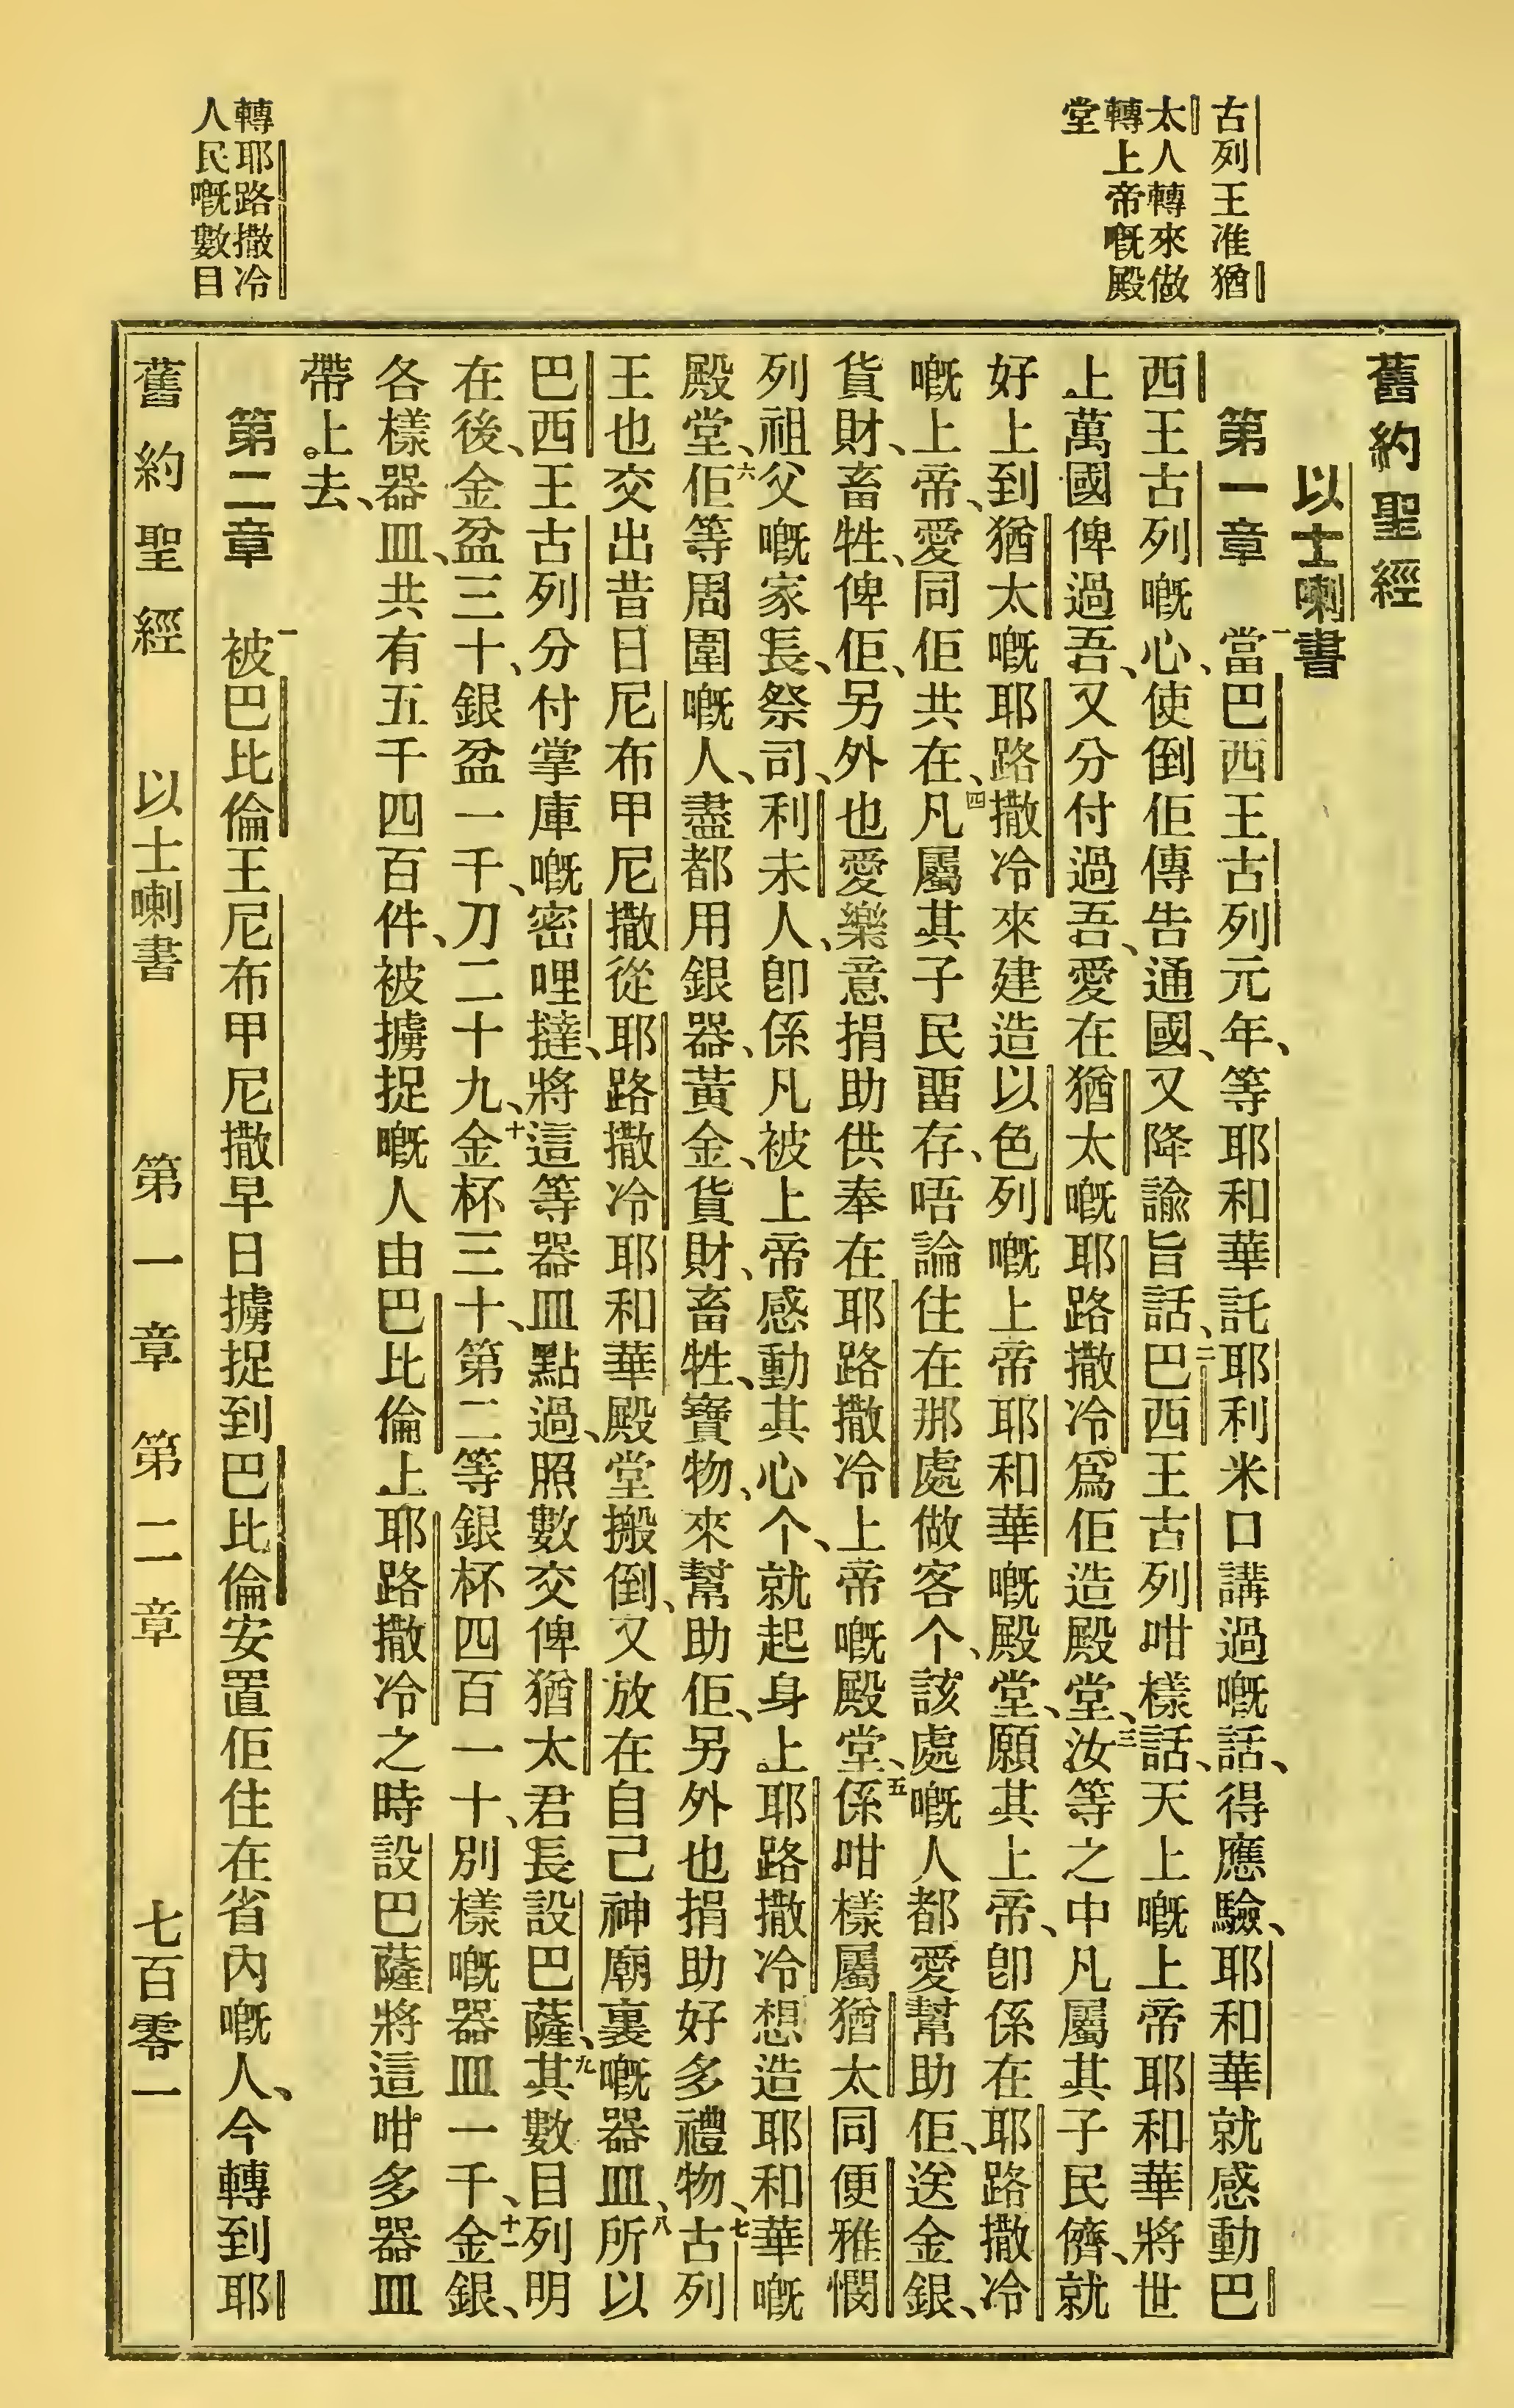 古列王准猶
太人轉來做
轉上帝嘅殿
堂
轉耶路撒冷
人民嘅數目
舊約聖經
以士喇書
第一章 一當巴西王古列元年、等耶和華託耶利米口講過嘅話、得應驗、耶和華就感動巴
西王古列嘅心、使倒佢傳告通國、又降諭旨話、二巴西王古列咁樣話、天上嘅上帝耶和華將世
上萬國俾過吾、又分付過吾、愛在猶太嘅耶路撒冷爲佢造殿堂、三汝等之中凡屬其子民儕、就
好上到猶太嘅耶路撒冷來建造以色列嘅上帝耶和華嘅殿堂、願其上帝、卽係在耶路撒冷
嘅上帝、愛同佢共在、四凡屬其子民畱存、唔論住在那處做客个、該處嘅人都愛幫助佢、送金銀、
貨財、畜牲、俾佢、另外也愛樂意捐助供奉在耶路撒冷上帝嘅殿堂、五係咁樣屬猶太同便雅憫
列祖父嘅家長、祭司、利未人、卽係凡被上帝感動其心个、就起身上耶路撒冷想造耶和華嘅
殿堂、六佢等周圍嘅人、盡都用銀器、黃金、貨財、畜牲、寶物、來幫助佢、另外也捐助好多禮物、七古列
王也交出昔日尼布甲尼撒從耶路撒冷耶和華殿堂搬倒、又放在自己神廟裏嘅器皿、八所以
巴西王古列分付掌庫嘅密哩撻、將這等器皿點過、照數交俾猶太君長設巴薩、九其數目列明
在後、金盆三十、銀盆一千、刀二十九、十金杯三十、第二等銀杯四百一十、別樣嘅器皿一千、十一金銀、
各樣器皿、共有五千四百件、被擄捉嘅人由巴比倫上耶路撒冷之時設巴薩將這咁多器皿
帶上去、
第二章 一被巴比倫王尼布甲尼撒早日擄捉到巴比倫安置佢住在省內嘅人、今轉到耶
舊約聖經 以士喇書 第一章 第二章 七百零一